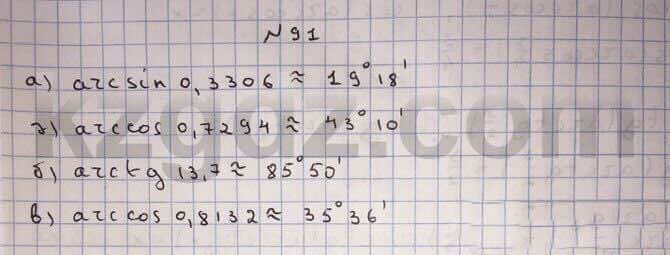 № 91
а) arcsin 0,3306 ≈ 19°18'
г) arccos 0,7294 ≈ 43°10'
б) arctg 13,7 ≈ 85°50'
в) arccos 0,8132 ≈ 35°36'
kzgdz.com